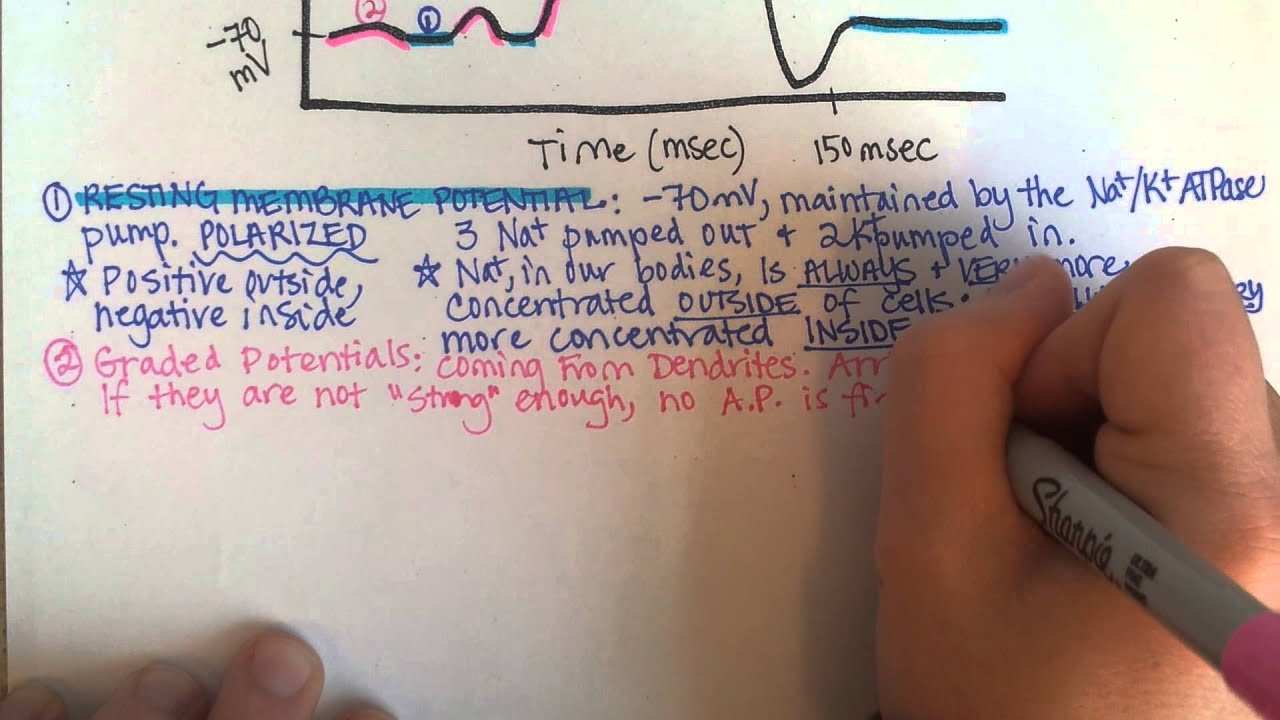 ②
①
-70
mV
Time (msec)
150 msec
① RESTING MEMBRANE POTENTIAL: -70mV, maintained by the Na+/K+ ATPase
pump. POLARIZED
3 Na+ pumped out + 2K+ pumped in.
☆ Positive outside,
negative inside
☆ Na+, in our bodies, is ALWAYS + VERY more
concentrated OUTSIDE of cells.
more concentrated INSIDE
② Graded Potentials: coming from Dendrites.
If they are not "strong" enough, no A.P. is
Sharpie